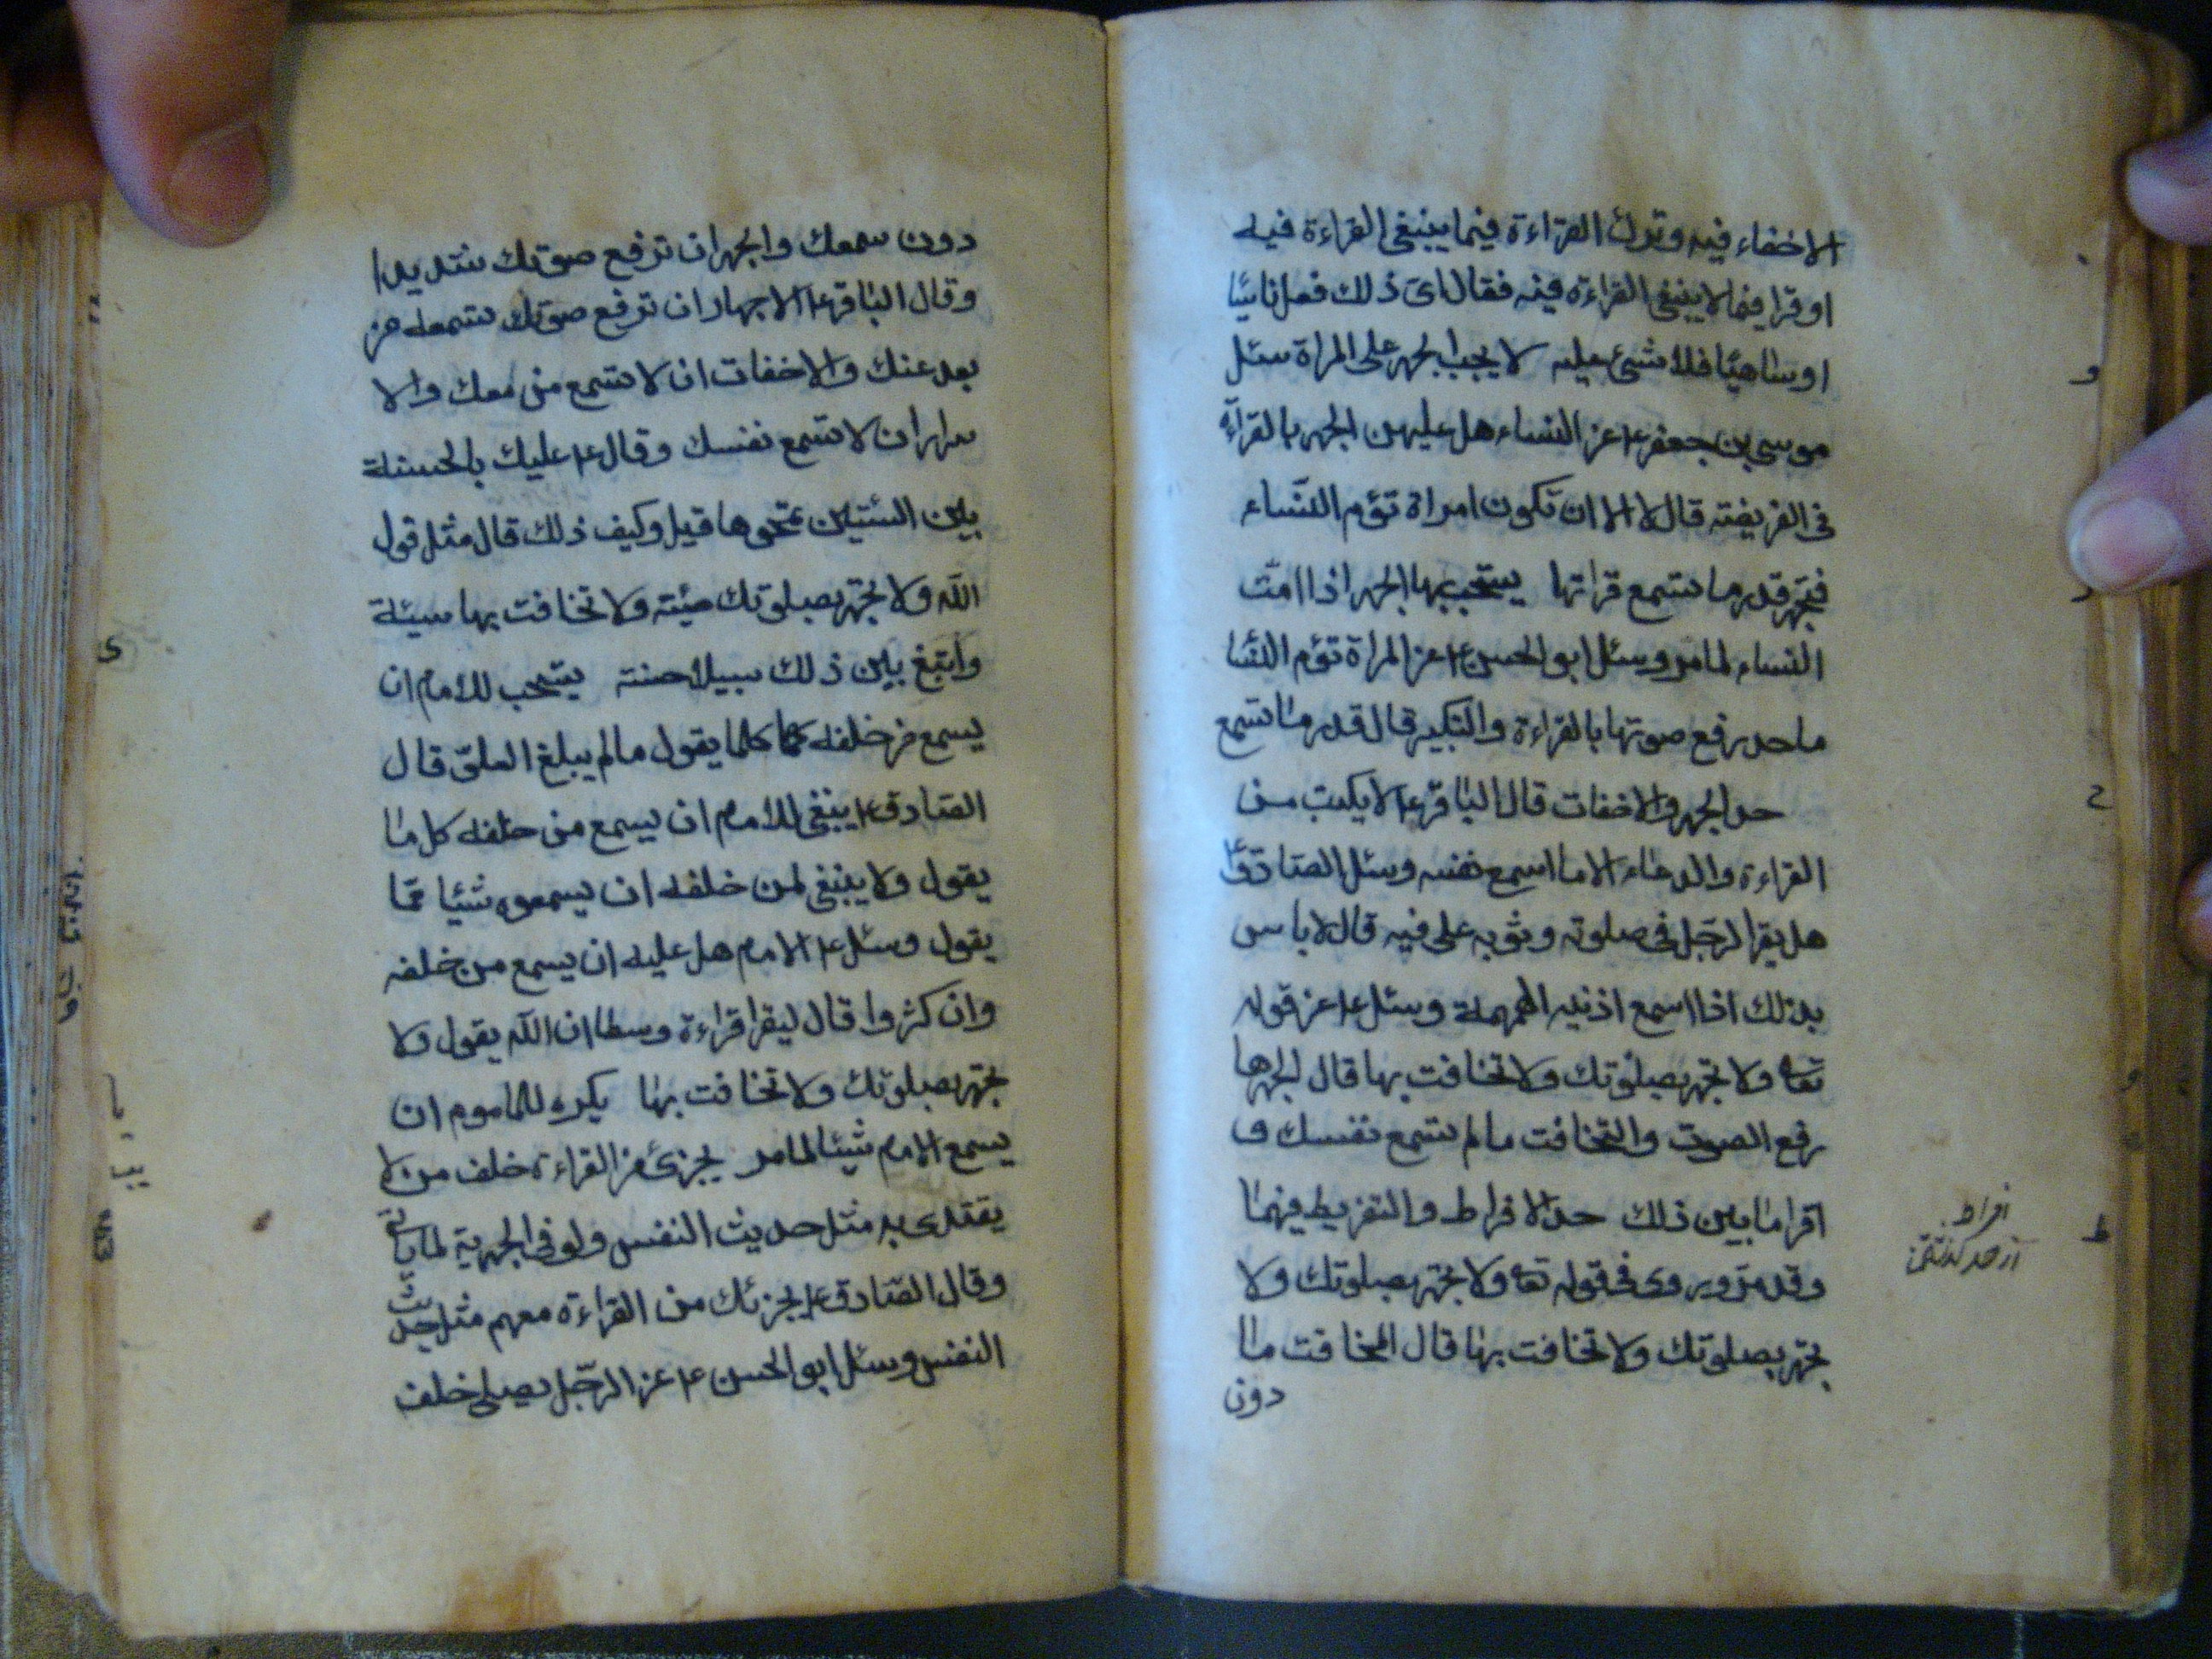 الاخفاء فيه وترك القراءة فيما ينبغى القراءة فيه
او قرا فيما لا ينبغى القراءة فيه فقال اى ذلك فعل ناسيًا
او ساهيًا فلا شئ عليه لا يجب الجهر على المراة سئل
موسى بن جعفر ع عن النساء هل عليهن الجهر بالقراءة
فى الفريضة قال لا الا ان تكون امراة تؤم النساء
فتجهر قدر ما تسمع قراتها يستحب بها الجهر اذا امّت
النساء لما مر وسئل ابو الحسن ع عن المراة تؤم النسا
ما حد رفع صوتها بالقراءة والتكبير قال قدر ما تسمع
حد الجهر والاخفات قال الباقر ع لا يكتب من
القراءة والدعاء الا ما اسمع نفسه وسئل الصادق ع
هل يقرا الرجل فى صلوته وثوبه على فيه قال لا باس
بذلك اذا اسمع اذنيه الهمهمة وسئل ع عن قوله
تعا ولا تجهر بصلوتك ولا تخافت بها قال الجهر بها
رفع الصوت والتخافت ما لم تسمع نفسك و
اقرا ما بين ذلك حد الافراط والتفريط فيهما
وقد مر وروى فى قوله تعا ولا تجهر بصلوتك ولا
تجهر بصلوتك ولا تخافت بها قال المخافت ما
دون
افراط
از حد گذشتن
و
ح
ط
دون سمعك والجهر ان ترفع صوتك شديدا
وقال الباقر ع الاجهار ان ترفع صوتك تسمعه من
بعد عنك والاخفات ان لا تسمع من معك والا
سرار ان لا تسمع نفسك وقال ع عليك بالحسنة
بين السيئتين تمحوها قيل وكيف ذلك قال مثل قول
الله ولا تجهر بصلوتك سيئة ولا تخافت بها سيئة
وابتغ بين ذلك سبيلا حسنة يستحب للامام ان
يسمع من خلفه كلما يقول ما لم يبلغ العلوّ قال
الصادق ع ينبغى للامام ان يسمع من خلفه كل ما
يقول ولا ينبغى لمن خلفه ان يسمعوه شيئا ممّا
يقول وسئل ع الامام هل عليه ان يسمع من خلفه
وان كثروا قال ليقرا قراءة وسطا ان الله يقول ولا
تجهر بصلوتك ولا تخافت بها يكره للماموم ان
يسمع الامام شيئا لما مر يجزئ من القراءة خلف من لا
يقتدى به مثل حديث النفس ولو فى الجهرية لما ياتى
وقال الصادق ع يجزئك من القراءة معهم مثل حديث
النفس وسئل ابو الحسن ع عن الرجل يصلى خلف
ى